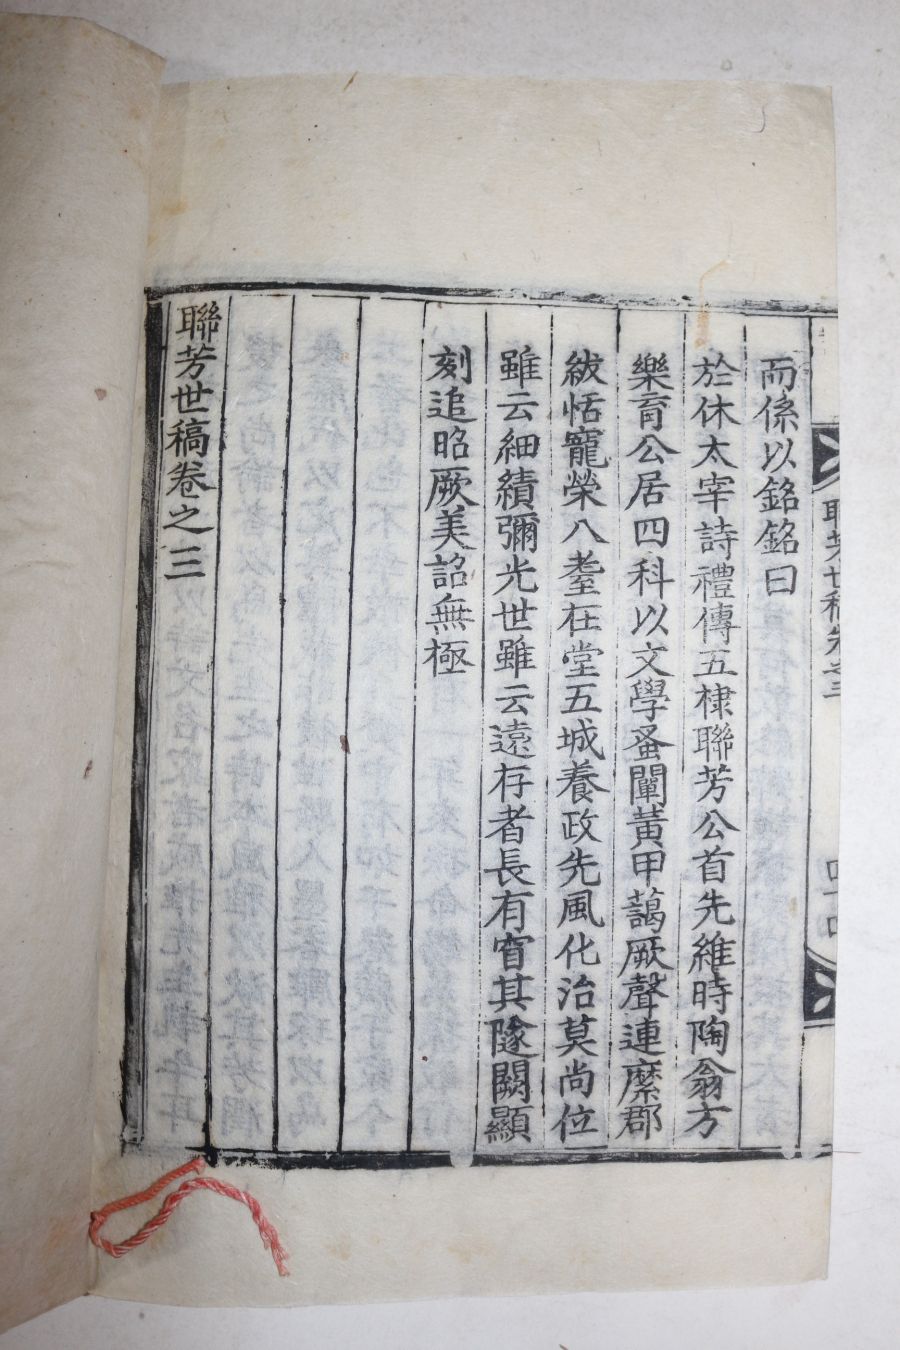 而係以銘銘曰
於休太宰詩禮傳五棣聯芳公首先維時陶翁方
樂育公居四科以文學蚤闡黃甲藹厥聲連縻郡
紱恬寵榮八耋在堂五城養政先風化治莫尚位
雖云細績彌光世雖云遠存者長有窅其隧闕顯
刻追昭厥美詔無極
聯芳世稿卷之三